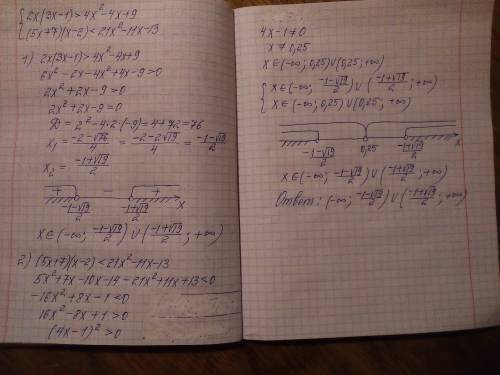 {2x(3x-1)>4x²-4x+9
{(5x+7)(x-2)<21x²-11x-13
1) 2x(3x-1)>4x²-4x+9
6x²-2x-4x²+4x-9>0
2x²+2x-9>0
2x²+2x-9=0
D=2²-4·2·(-9)=4+72=76
x₁=(-2-√76)/4=(-2-2√19)/4=(-1-√19)/2
x₂=(-1+√19)/2
+ - +
(-1-√19)/2 (-1+√19)/2 x
x∈(-∞; (-1-√19)/2)∪((-1+√19)/2; +∞)
2) (5x+7)(x-2)<21x²-11x-13
5x²+7x-10x-14-21x²+11x+13<0
-16x²+8x-1<0
16x²-8x+1>0
(4x-1)²>0
4x-1≠0
x≠0,25
x∈(-∞; 0,25)∪(0,25; +∞)
{x∈(-∞; (-1-√19)/2)∪((-1+√19)/2; +∞)
{x∈(-∞; 0,25)∪(0,25; +∞)
(-1-√19)/2 0,25 (-1+√19)/2 x
x∈(-∞; (-1-√19)/2)∪((-1+√19)/2; +∞)
Ответ: (-∞; (-1-√19)/2)∪((-1+√19)/2; +∞)